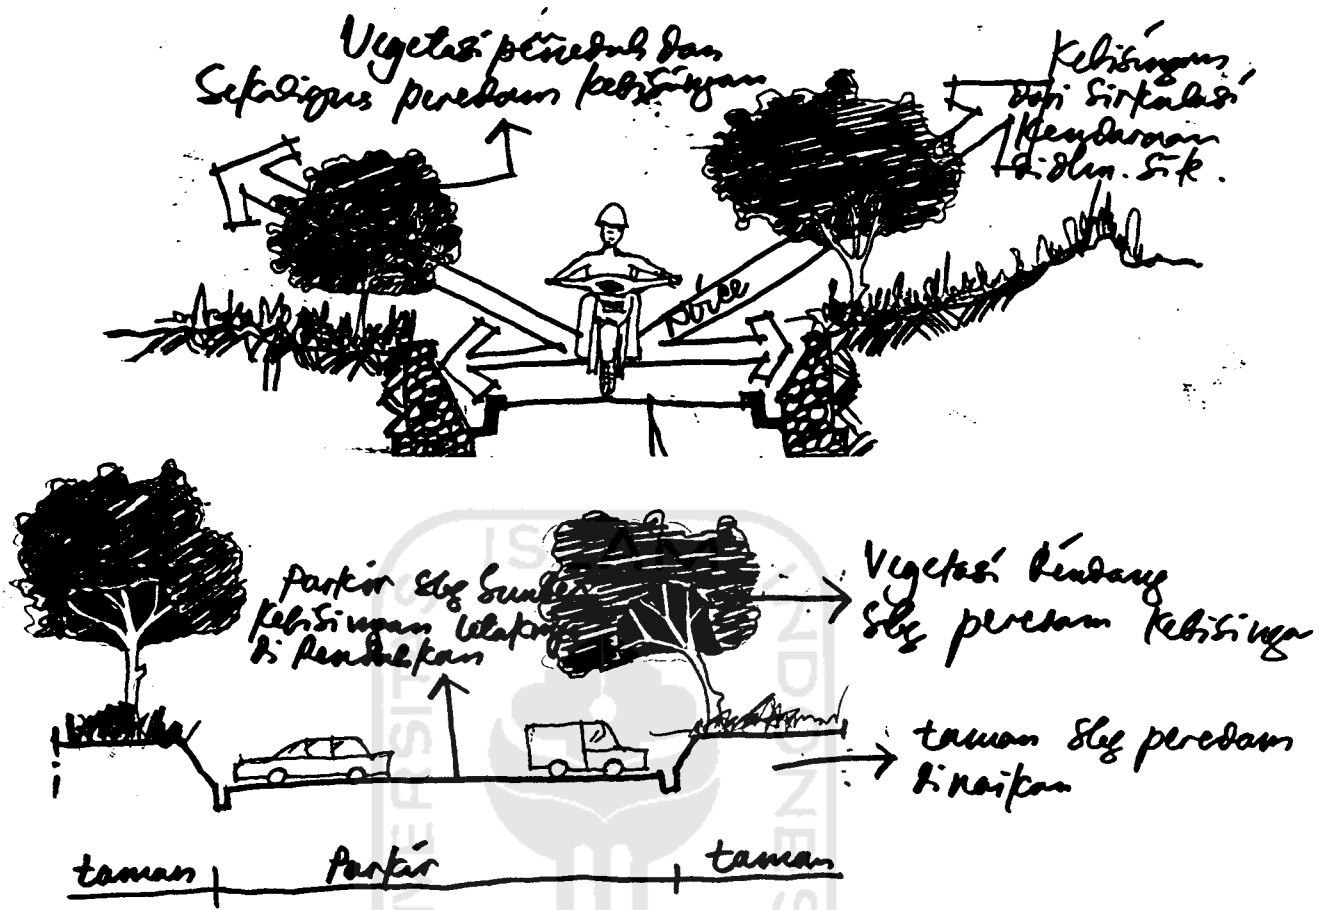 Vegetasi peneduh dan
Sekaligus peredam kebisingan
Kebisingan
dari Sirkulasi
Kendaraan
didlm. Sik.
Noice
Parkir sbg Sumber
Kebisingan letaknya
di Rendahkan
Vegetasi Rindang
sbg peredam Kebisinga
taman sbg peredam
di naikan
taman Parkir taman
ISLAM
INDONES
VERSITAS